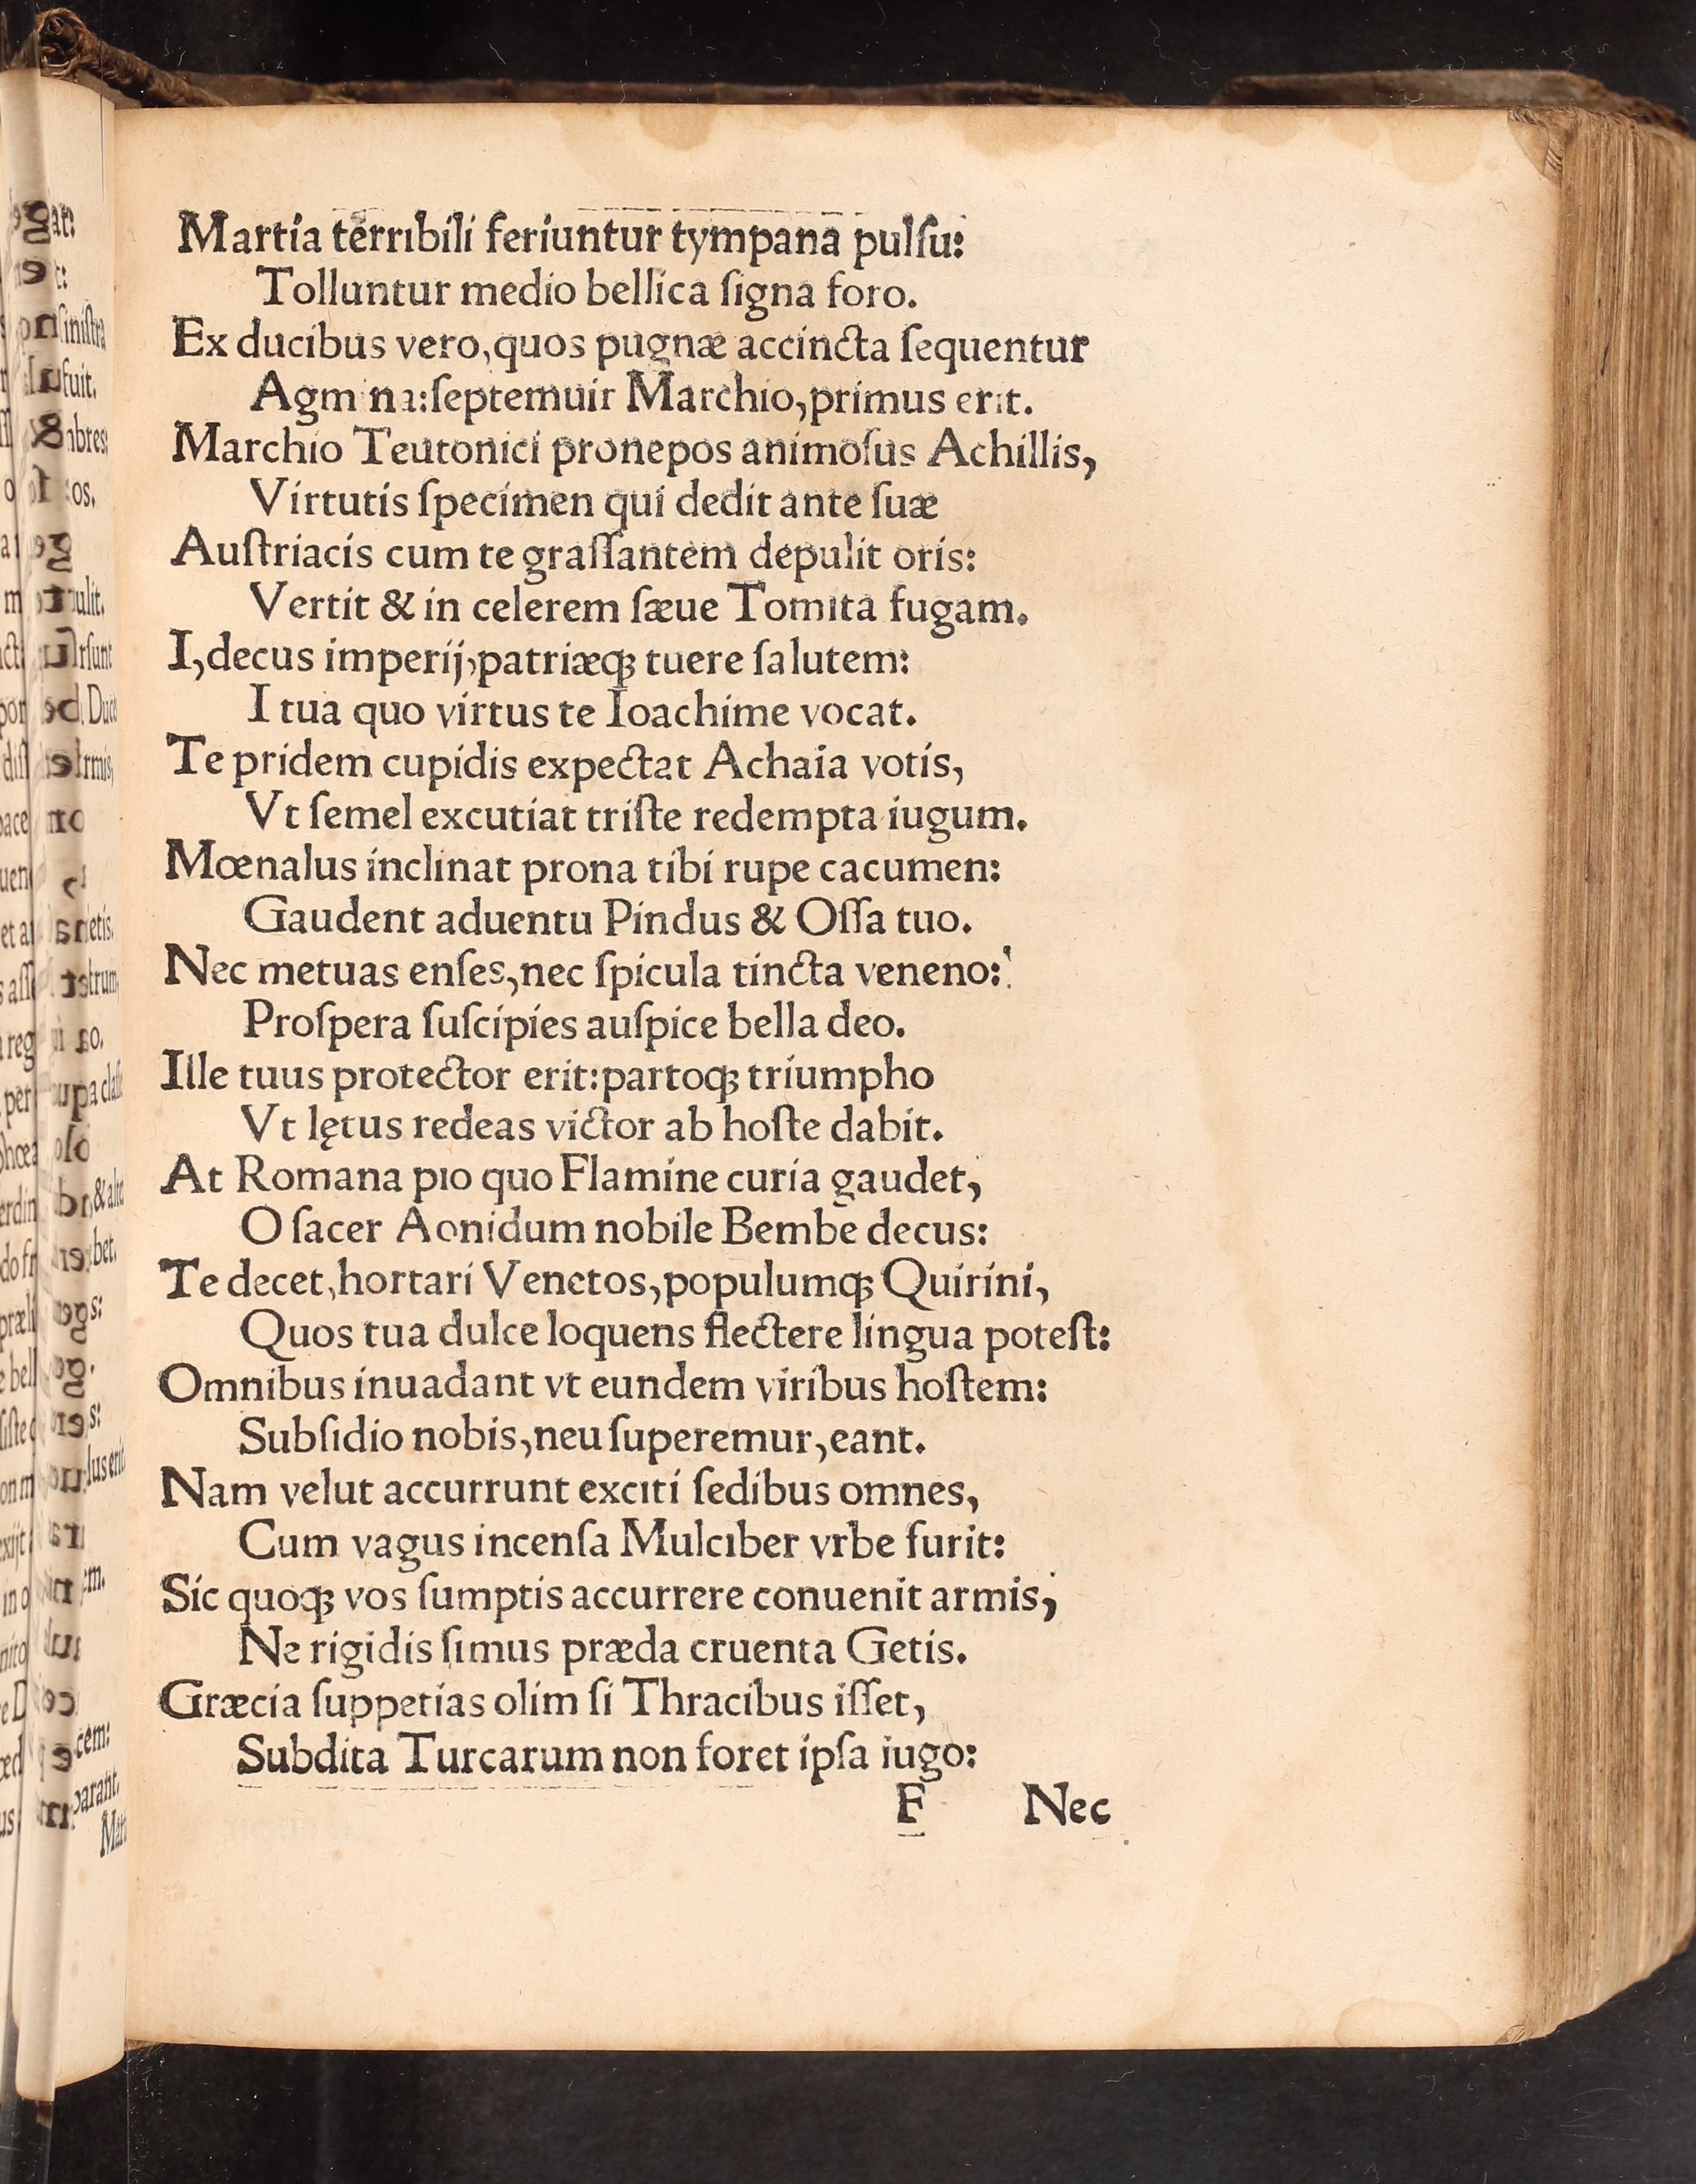 Martia terribili feriuntur tympana pulſu:
Tolluntur medio bellica ſigna foro.
Ex ducibus vero, quos pugnæ accincta ſequentur
Agmina: ſeptemuir Marchio, primus erit.
Marchio Teutonici pronepos animoſus Achillis,
Virtutis ſpecimen qui dedit ante ſuæ
Auſtriacis cum te graſſantem depulit oris:
Vertit & in celerem ſæue Tomita fugam.
I, decus imperij, patriæqꝫ tuere ſalutem:
I tua quo virtus te Ioachime vocat.
Te pridem cupidis expectat Achaia votis,
Vt ſemel excutiat triſte redempta iugum.
Mœnalus inclinat prona tibi rupe cacumen:
Gaudent aduentu Pindus & Oſſa tuo.
Nec metuas enſes, nec ſpicula tincta veneno:
Proſpera ſuſcipies auſpice bella deo.
Ille tuus protector erit: partoqꝫ triumpho
Vt lętus redeas victor ab hoſte dabit.
At Romana pio quo Flamine curia gaudet,
O ſacer Aonidum nobile Bembe decus:
Te decet, hortari Venetos, populumqꝫ Quirini,
Quos tua dulce loquens flectere lingua poteſt:
Omnibus inuadant vt eundem viribus hoſtem:
Subſidio nobis, neu ſuperemur, eant.
Nam velut accurrunt exciti ſedibus omnes,
Cum vagus incenſa Mulciber vrbe furit:
Sic quoqꝫ vos ſumptis accurrere conuenit armis,
Ne rigidis ſimus præda cruenta Getis.
Græcia ſuppetias olim ſi Thracibus iſſet,
Subdita Turcarum non foret ipſa iugo:
F Nec